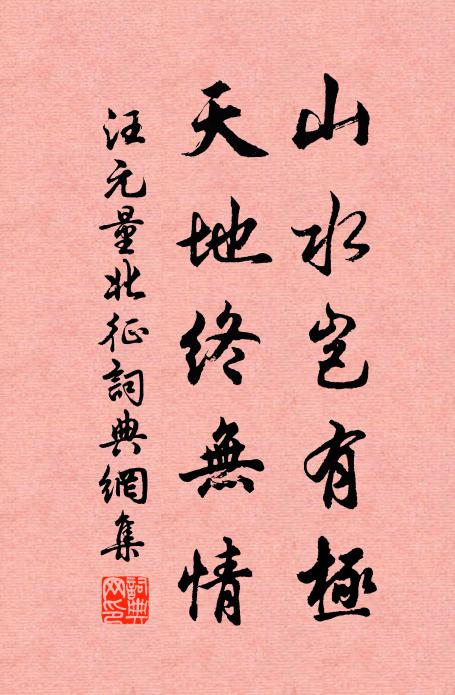 山水岂有極
天地终無情
汪元量北征詞典網集
詞典網印